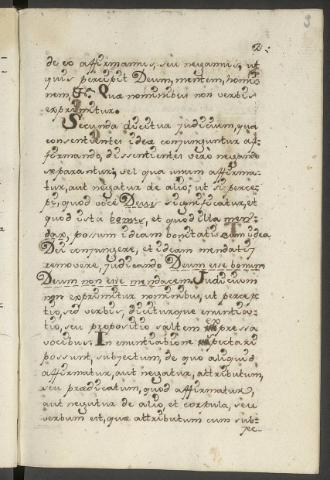 2.
de eo affirmamus, seu negamus, ut
quis percipit Deum, mentem, homi
nem, &c. Quæ nominibus non verbis
exprimitur.
Secunda dicitur judicium, qua
consentientes ideæ conjunguntur af-
firmando, dissentientes vero negando
separantur; vel qua unum affirma-
tur, aut negatur de alio; ut si percep-
quod voce Deus significatur, et
quod ista bonus, et quod illa men-
dax, possum ideam bonitatis cum idea
Dei conjungere, et ideam mendatis
removere, judicando Deum esse bonum
Deum non esse mendacem. Judicium
non exprimitur nominibus, ut percep
tio, sed verbis, diciturque enuntia-
tio, seu propositio saltem expressa
vocibus. In enuntiatione spectari
possunt, subjectum, de quo aliquid
affirmatur, aut negatur, attributum,
seu prædicatum, quod affirmatur,
aut negatur de alio, et copula, seu
verbum est, quæ attributum cum sub-